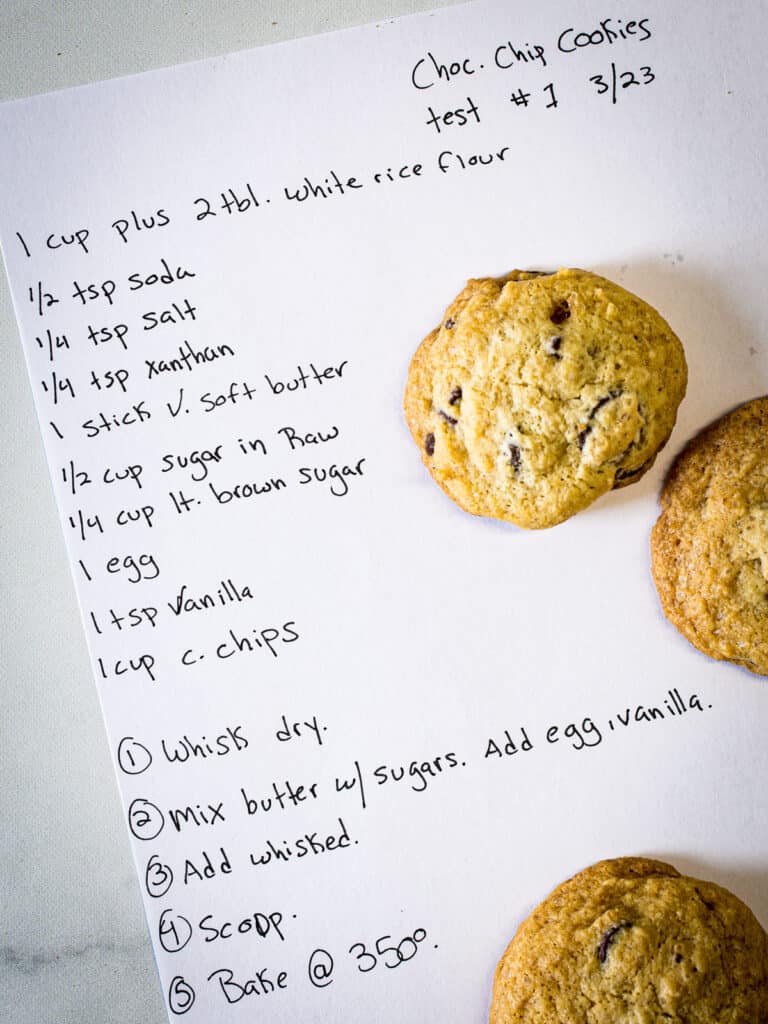 Choc. Chip Cookies
test #1 3/23
1 cup plus 2 tbl. white rice flour
1/2 tsp soda
1/4 tsp salt
1/4 tsp xanthan
1 stick v. soft butter
1/2 cup sugar in Raw
1/4 cup lt. brown sugar
1 egg
1 tsp vanilla
1 cup c. chips
① Whisk dry.
② Mix butter w/ sugars. Add egg, vanilla.
③ Add whisked.
④ Scoop.
⑤ Bake @ 350°.